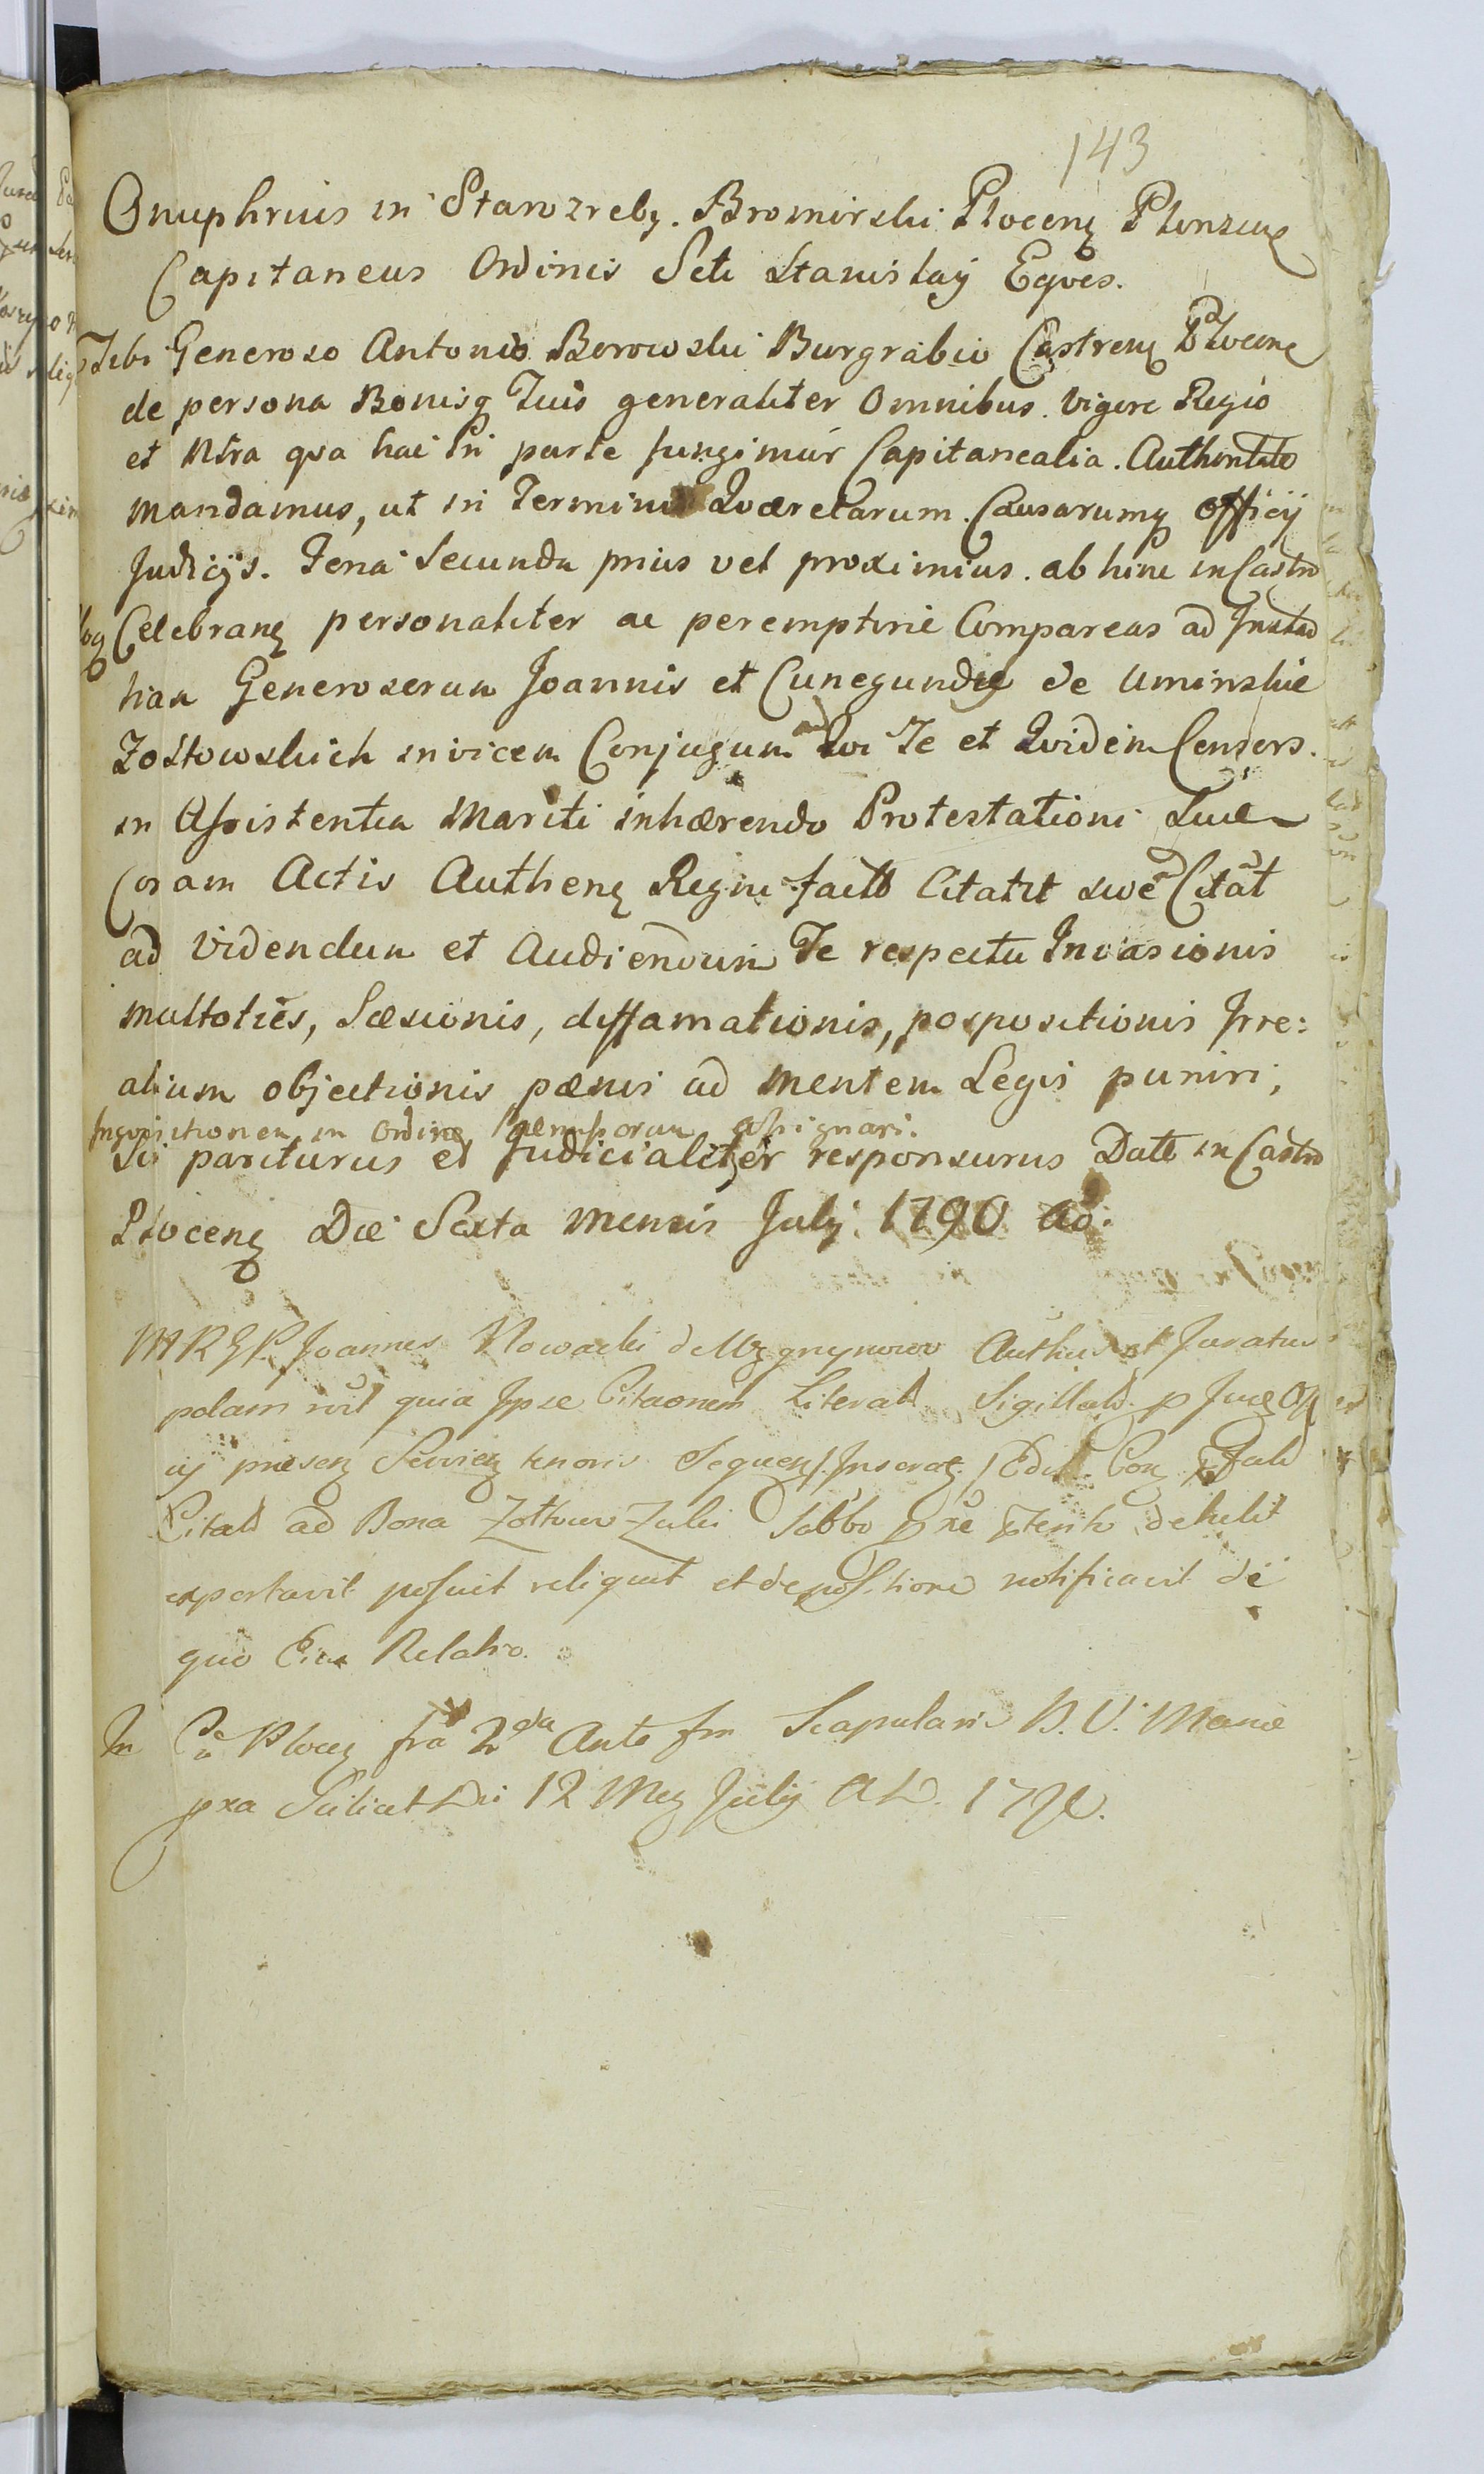 143
Onuphrius in Starozreby Bromirski Ploceng Plonscens
Capitaneus Ordinis Scti Stanislaij Eqves.
Tibi Generoso Antonio Borowski Burgrabio Castreng Ploceng
de persona Bonisq Tuis generaliter Omnibus Vigore Regio
et Ntra qva hac in parte fungimur Capitaneali Authoritate
mandamus, ut in Terminis Qværelarum Causarumq Officij
Judicijs Feria Secunda prius vel proximius ab hinc in Castro
Celebrang personaliter ac peremptorie Compareas ad Instan
tiam Generosorum Joannis et Cunegundæ de Uminskie
Zoltowskich invicem Conjugum Qvi Te et Qvidem Consors
in Assistentia Mariti inhærendo Protestationi Suæ
Coram Actis Autheng Regni factæ Citatu sive Citat
ad Videndum et Audiendum Te respectu Invasionis
multoties, Læsionis, diffamationis, pospositionis Irre:
alium objectionis pænis ad mentem Legis puniri;
Inqvisitionem in Ordine pænarum assignari.
Sis pariturus et Judicialiter responsurus Datt in Castro
Ploceng Die Sexta mensis Julij 1790 Ao.
MRGP. Joannes Nowacki de Authus et Juratus
palam rclt quia Ipse Citaonem Literald Sigillatd p Jud Off
ij præseng tenoris Sequeng Inserat Edit
Citatd ad Bona Zoltowo Sabbo detulit
exportavit posuit reliquit et de positione notificavit de
quo Ejus Relatio.
In Ca Ploceng fra 2da Ante fm Scapularis B. V. Mariæ
pxa Scilicet Die 12 Meg Julij AD. 1790.